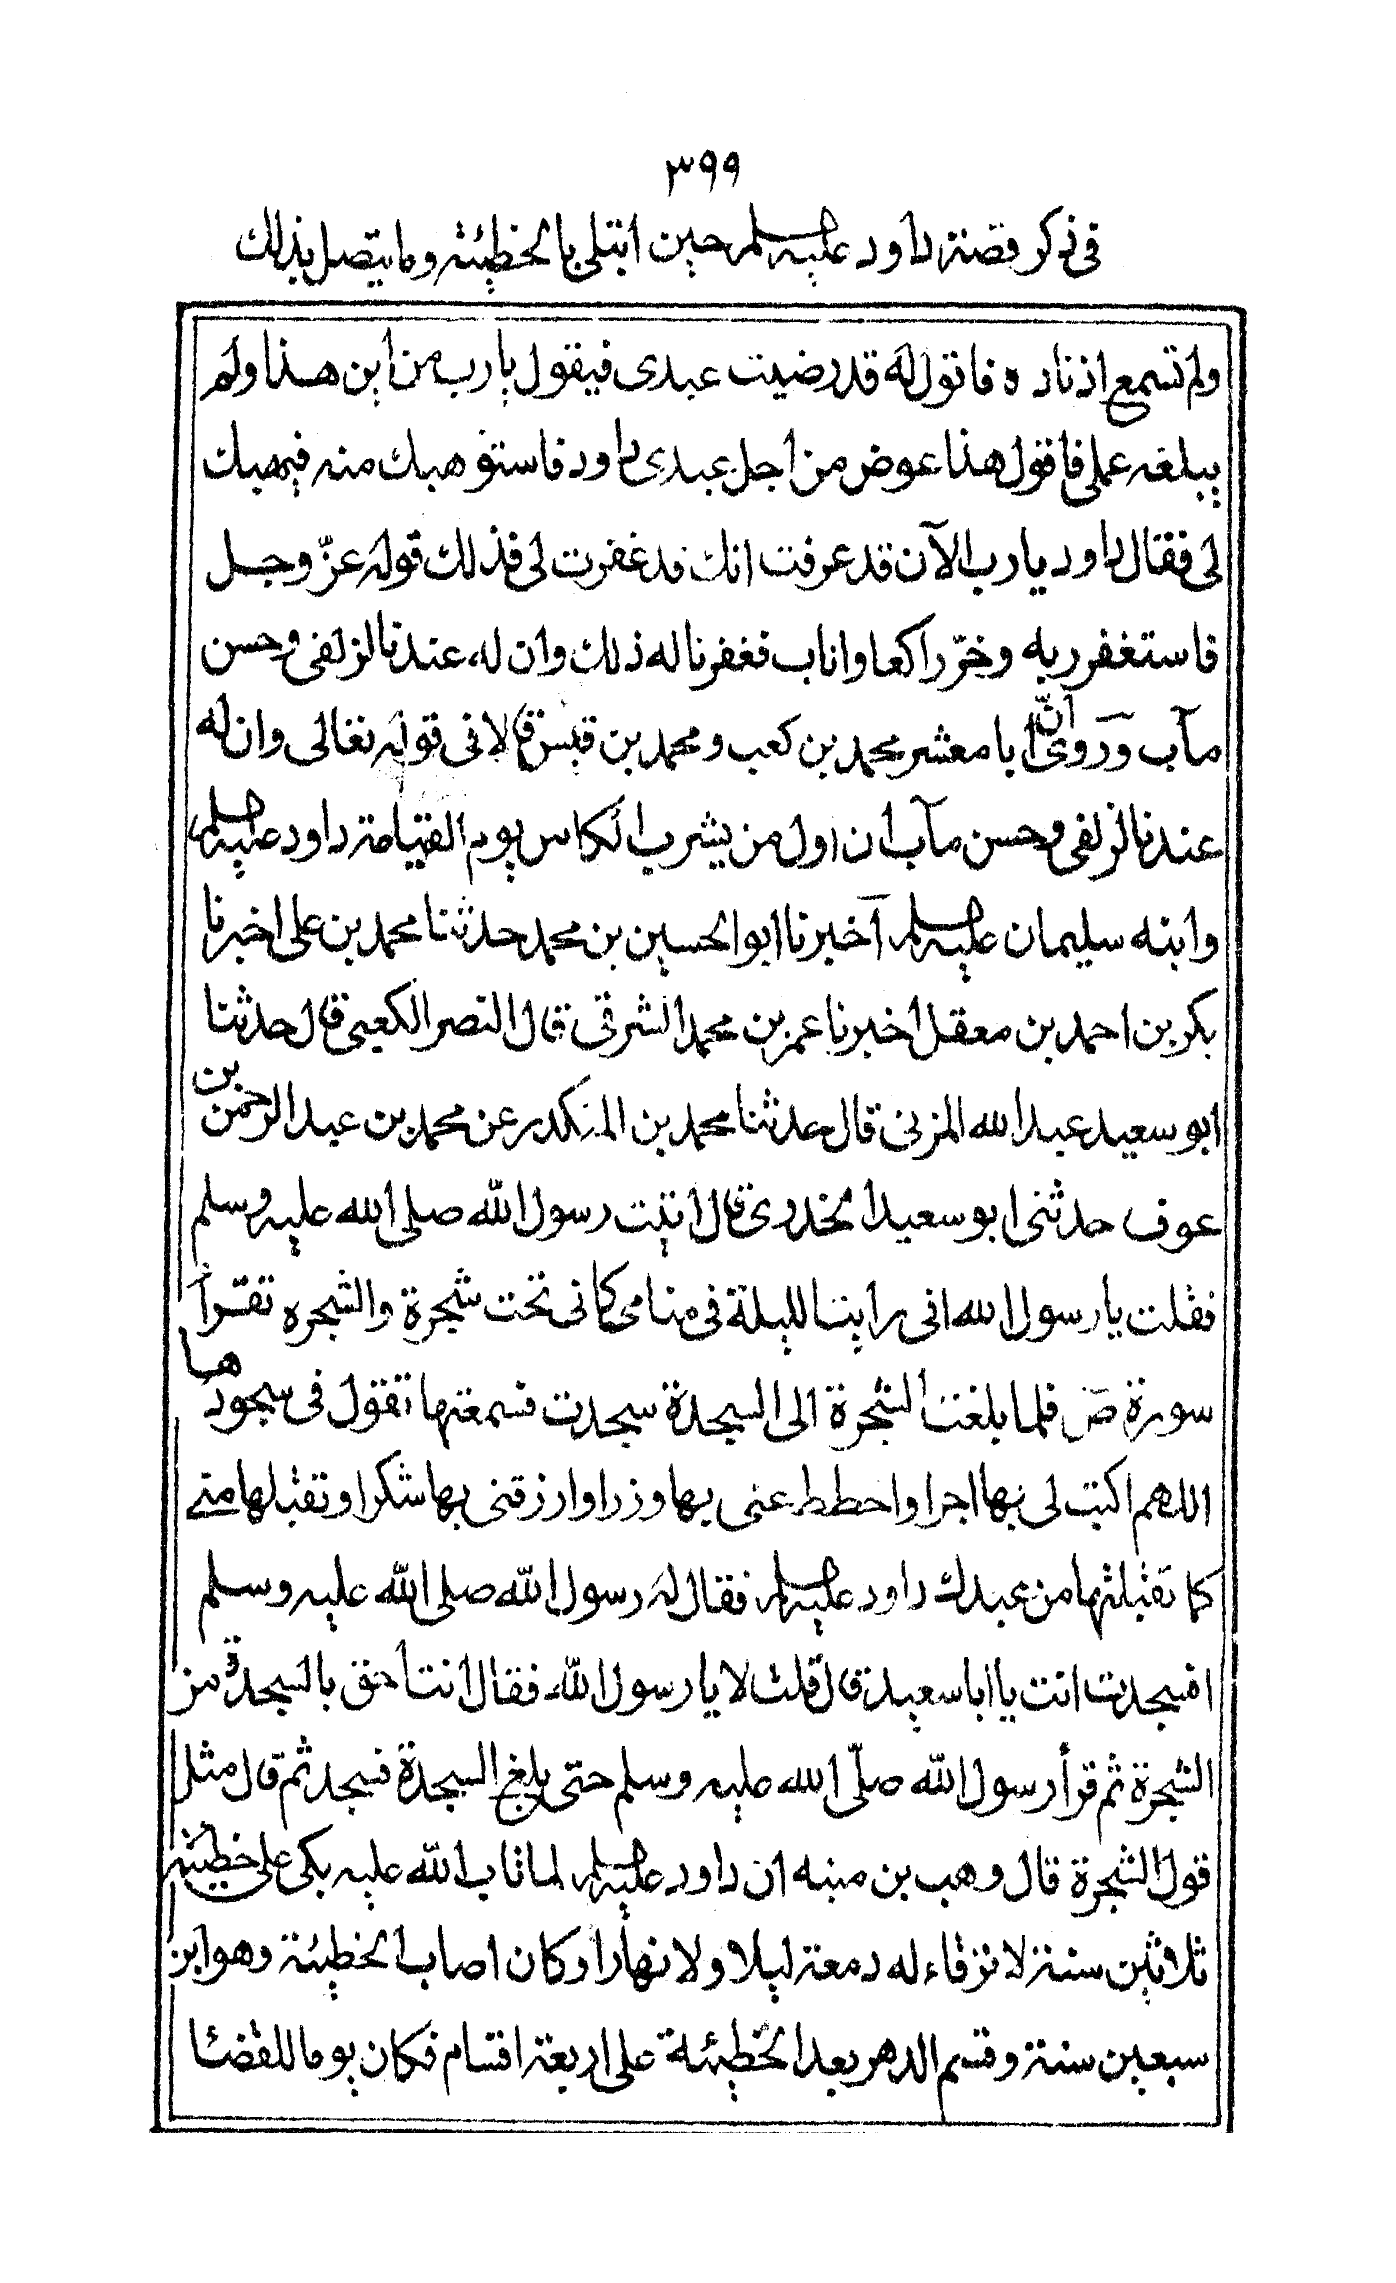 ٣٩٩
فى ذكر قصة داود عليه السلم حين ابتلى بالخطيئة وما يتصل بذلك
ولم تسمع اذناه فاقول له قد رضيت عبدى فيقول يا رب من اين هذا ولم
يبلغه عملى فاقول هذا عوض من اجل عبدى داود فاستوهبك منه فيهبك
لى فقال داود يا رب الآن قد عرفت انك قد غفرت لى فذلك قوله عزّ وجل
فاستغفر ربه وخرّ راكعا واناب فغفرنا له ذلك وان له عندنا لزلفى وحسن
مآب وروى أنّ ابا معشر محمد بن كعب ومحمد بن قيس قالا فى قوله تعالى وان له
عندنا لزلفى وحسن مآب ان اول من يشرب الكاس يوم القيامة داود عليه السلم
وابنه سليمان عليه السلم أخبرنا ابو الحسين بن محمد حدثنا محمد بن على اخبرنا
بكر بن احمد بن معقل اخبرنا عمر بن محمد الشرقى قال النصر الكعبى قال حدثنا
ابو سعيد عبد الله المزنى قال حدثنا محمد بن المنكدر عن محمد بن عبد الرحمن بن
عوف حدثنى ابو سعيد الخدرى قال اتيت رسول الله صلى الله عليه وسلم
فقلت يا رسول الله انى رايت الليلة فى منامى كانى تحت شجرة والشجره تقرأ
سورة صٓ فلما بلغت الشجرة الى السجدة سجدت فسمعتها تقول فى سجودها
اللهم اكتب لى بها اجرا واحطط عنى بها وزرا وارزقنى بها شكرا وتقبلها منى
كما تقبلتها من عبدك داود عليه السلم فقال له رسول الله صلى الله عليه وسلم
افسجدت انت يا ابا سعيد قال قلت لا يا رسول الله فقال انت احق بالسجدة من
الشجرة ثم قرأ رسول الله صلّى الله عليه وسلم حتى بلغ السجدة فسجد ثم قال مثل
قول الشجرة قال وهب بن منبه ان داود عليه السلم لما تاب الله عليه بكى على خطيئته
ثلاثين سنة لا ترقاء له دمعة ليلا ولا نهارا وكان اصاب الخطيئة وهو ابن
سبعين سنة وقسم الدهر بعد الخطيئة على اربعة اقسام فكان يوما للقضا